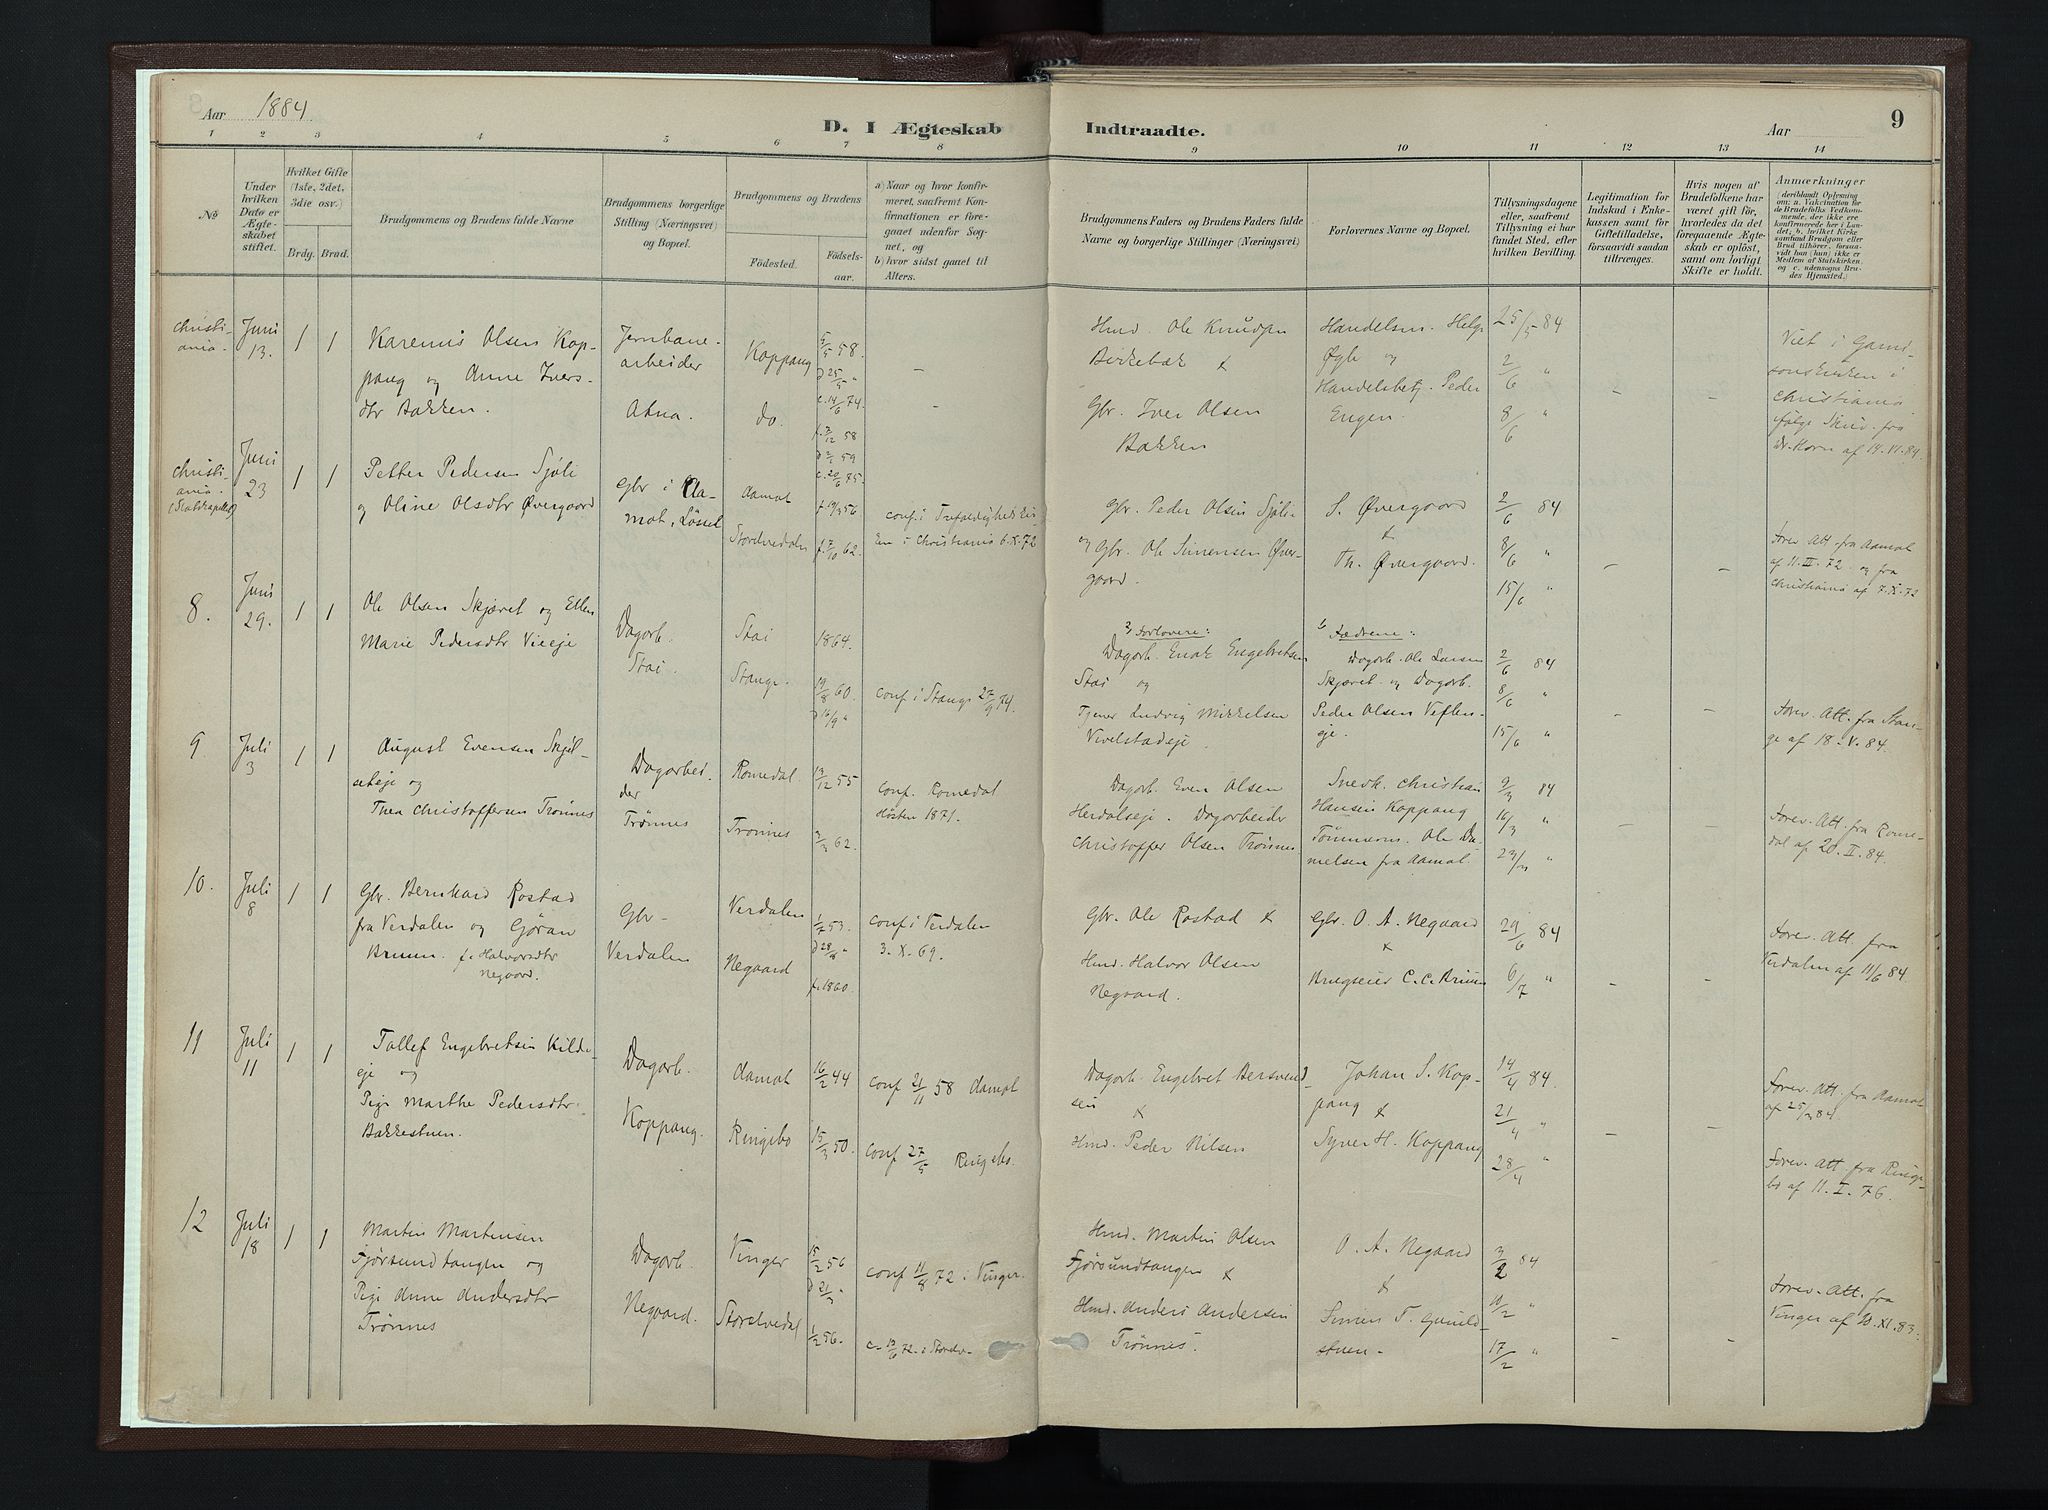 Aar 1884
D. I Ægteskab Indtraadte.
Aar
9
1 2 3 4 5 6 7 8 9 10 11 12 13 14
№
Under hvilken Dato er Ægteskabet stiftet.
Hvilket Gifte (1ste, 2det, 3die osv.)
Brdg. Brud.
Brudgommens og Brudens fulde Navne
Brudgommens borgerlige Stilling (Næringsvei) og Bopæl.
Brudgommens og Brudens
Fødested. Fødselsaar.
a) Naar og hvor konfirmeret, saafremt Konfirmationen er foregaaet udenfor Sognet, og
b) hvor sidst gaaet til Alters.
Brudgommens Faders og Brudens Faders fulde Navne og borgerlige Stillinger (Næringsvei)
Forlovernes Navne og Bopæl.
Tillysningsdagene eller, saafremt Tillysning ei har fundet Sted, efter hvilken Bevilling.
Legitimation for Indskud i Enkekassen samt for Giftetilladelse, forsaavidt saadan tiltrænges.
Hvis nogen af Brudefolkene har været gift før, hvorledes da det foregaaende Ægteskab er opløst, samt om lovligt Skifte er holdt.
Anmærkninger
(deriblandt Oplysning om: a. Vakcination for de Brudefolks Vedkommende, der ikke ere konfirmerede her i Landet, b. hvilket Kirkesamfund Brudgom eller Brud tilhører, forsaavidt han (hun) ikke er Medlem af Statskirken, og c. udensogns Brudes Hjemsted.)
Christiania.
Juni 13.
1 1
Karenus Olsen Koppang og Anne Iversdtr Bakken.
Jernbanearbeider
Atna.
Koppang
do.
5/5 58.
d 25/5 "
c. 14/6 74.
f. 7/12 58
c. 20/6 75.
Hmd. Ole Knudsen
Birkebæk &
Gbr. Iver Olsen
Bakken
Handelsm. Helge
Øgle og
Handelsbetj. Peder
Engen.
25/5 84
2/6 "
8/6 "
Viet i Garnisonskirken i
Christiania
ifølge Skriv. fra
af 14.11.84.
Christiania.
(Slotskapellet)
Juni 23
1 1
Petter Pedersen Sjøli
og Oline Olsdtr Øvergaard
Gbr i Aamot, Løsset
Aamot
Storelvedalen
f. 19/3 56
f. 7/10 62.
conf. i Trefoldighedskirken i Christiania 6.X.72
Gbr. Peder Olsen Sjøli
og Gbr. Ole Simensen Øvergaard.
S. Øvergaard
&
Th. Øvergaard.
2/6 84
8/6 "
15/6 "
Forev. Att. fra Aamot
af 11.III.72 og fra
Christiania af 7.X.72
8.
Juni 29.
1 1
Ole Olsen Skjæret og Ellen
Marie Pedersdtr Vieeje
Dagarb.
Stai.
Stai
Stange.
1864.
19/8 60.
d 16/9 "
conf i Stange 27/9 74.
2) Forlovere:
Dagarb. Enok Engebretsen
Stai og
Tjener Ludvig Mikkelsen
Vivelstadeje.
1) Fædrene:
Dagarb. Ole Larsen
Skjæret og Dagarb.
Peder Olsen Veflen-
eje.
2/6 84
8/6 "
15/6 "
Forev. Att. fra Stange af 18.V.84.
9.
Juli 3
1 1
August Evensen Skjølseteje og
Thea Christoffersen Trønnes
Dagarbeider
Trønnes
Romedal.
Trønnes
13/12 55
3/3 62.
conf. Romedal
Høsten 1871.
Dagarb. Even Olsen
Herdalseje. Dagarbeider
Christoffer Olsen Trønnes.
Snedk. Christian
Hansen Koppang
Tømmerm. Ole Danielsen fra Aamot.
9/3 84
16/3 "
23/3 "
Forev. Att. fra Romedal af 20.II.84.
10.
Juli 8
1 1
Gbr. Bernhard Rostad
fra Verdalen og Gøran
Bruun. f. Halvorsdtr
Negaard.
Gbr-
Verdalen
Verdalen
Negaard
1/7 53.
f. 1860.
conf i Verdalen
3.X.69.
Gbr. Ole Rostad &
Hmd. Halvor Olsen
Negaard.
Gbr. O. A. Negaard
&
Brugseier C. C. Bruun
29/6 84
6/7 "
Forev. Att. fra
Verdalen af 11/6 84.
11
Juli 11
1 1
Tollef Engebretsen Kildeeje og
Pige Marthe Pedersdtr.
Bakkestuen.
Dagarb.
Koppang.
Aamot
Ringebo
16/2 44
15/3 50.
conf 21/11 58 Aamot
conf 27/5 Ringebo.
Dagarb. Engebret Bersvendsen
&
Hmd. Peder Nilsen
Johan S. Koppang &
Syver H. Koppang
14/4 84.
21/4 "
28/4 "
Forev. Att. fra Aamot
af 25/3 84
Forev. Att. fra Ringebo af 11.I.76.
12
Juli 18
1 1
Martin Martinsen
Fjørsundtangen og
Pige Anne Andersdtr
Trønnes
Dagarb.
Negaard.
Vinger
Storelvedal
15/2 56
d 21/3 "
1/2 56.
conf 11/8 72 i Vinger.
c. 19/6 72. i Storelv.
Hmd. Martin Olsen
Fjørsundtangen &
Hmd. Anders Andersen
Trønnes.
O. A. Negaard
&
Simen T. Gunildstuen.
3/2 84
10/2 "
17/2 "
Forev. Att. fra
Vinger af 10.XI.83.